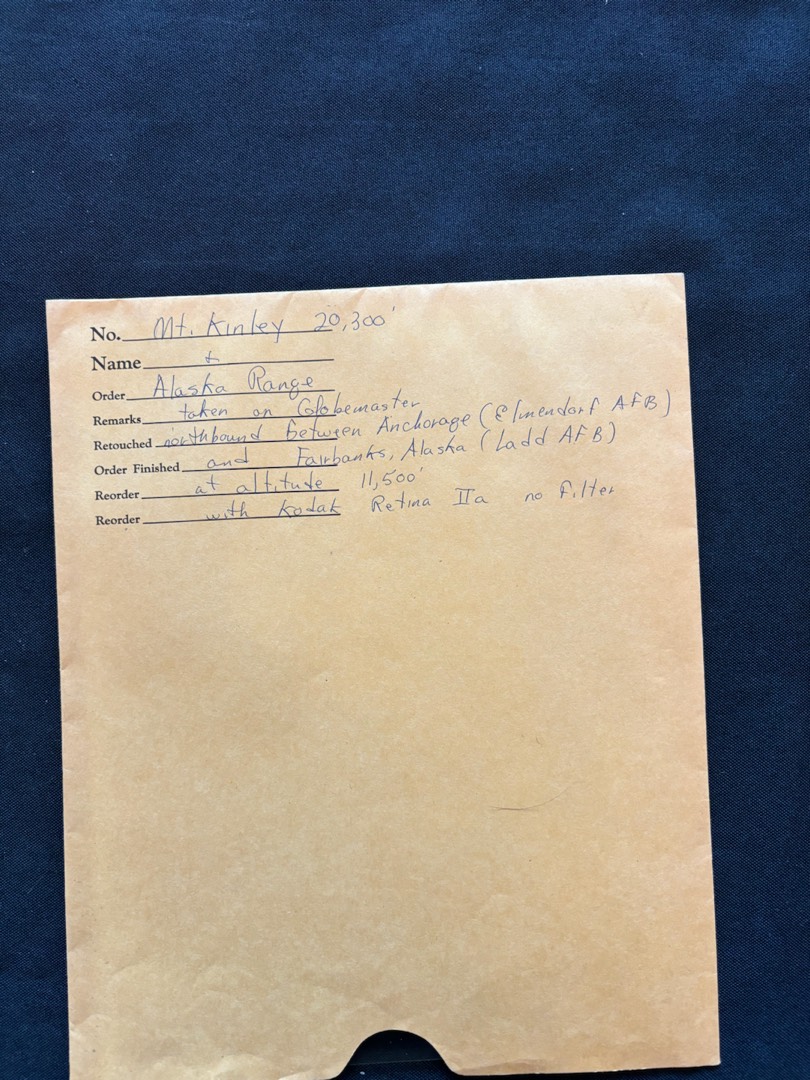 No. Mt. Kinley 20,300'
Name &
Order Alaska Range
Remarks taken on Globemaster
Retouched northbound between Anchorage (Elmendorf AFB)
Order Finished and Fairbanks, Alaska (Ladd AFB)
Reorder at altitude 11,500'
Reorder with Kodak Retina IIa no filter